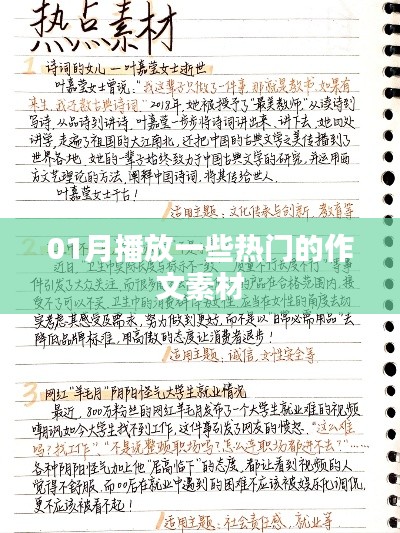 热点素材
1 诗词的女儿—叶嘉莹女士逝世
叶嘉莹女士曾说，“我这辈子只做了一件事，那就是教书，如果有
来生，我还教古典诗词”2018年，她被授予了“最美教师”从读诗到
写诗，从品诗到讲诗，叶嘉莹一步步将诗词讲出来，讲下去，她四处
讲学，走遍了祖国的大江南北，还把中国的古典文学之美传播到了
世界各地，她的一辈子始终致力于中国古典文学的研究，并运用西
方文艺理论的方法，阐释中国诗词，将其传给世人。
叶嘉莹女士千古！
适用主题：文化传承与创新，教育等
01月播放一些热门的作
文素材
实考虑其感受及需求，努力做到更好，而不是以“日常必需用品”去
降低品牌标准，用高傲的态度让消费者退步！
适用主题：诚信，女性安全等
3 网红“羊毛月”阴阳怪气大学生就业情况
最近，800万粉丝的网红羊毛月发布了一个大学生就业难的视频
嘲讽如今大学生找不到工作，这件事引发了网友的愤怒，“这么难
吗？找工作”“不是说整顿职场吗？怎么连职场都进不去？”……
各种阴阳怪气加上他“居高临下”的态度，都让看到视频的人
觉得不舒服，而00后在就业中遇到的困难不应该被娱乐化调侃，
更不应该被看不起！
适用主题：社会责任感，就业等